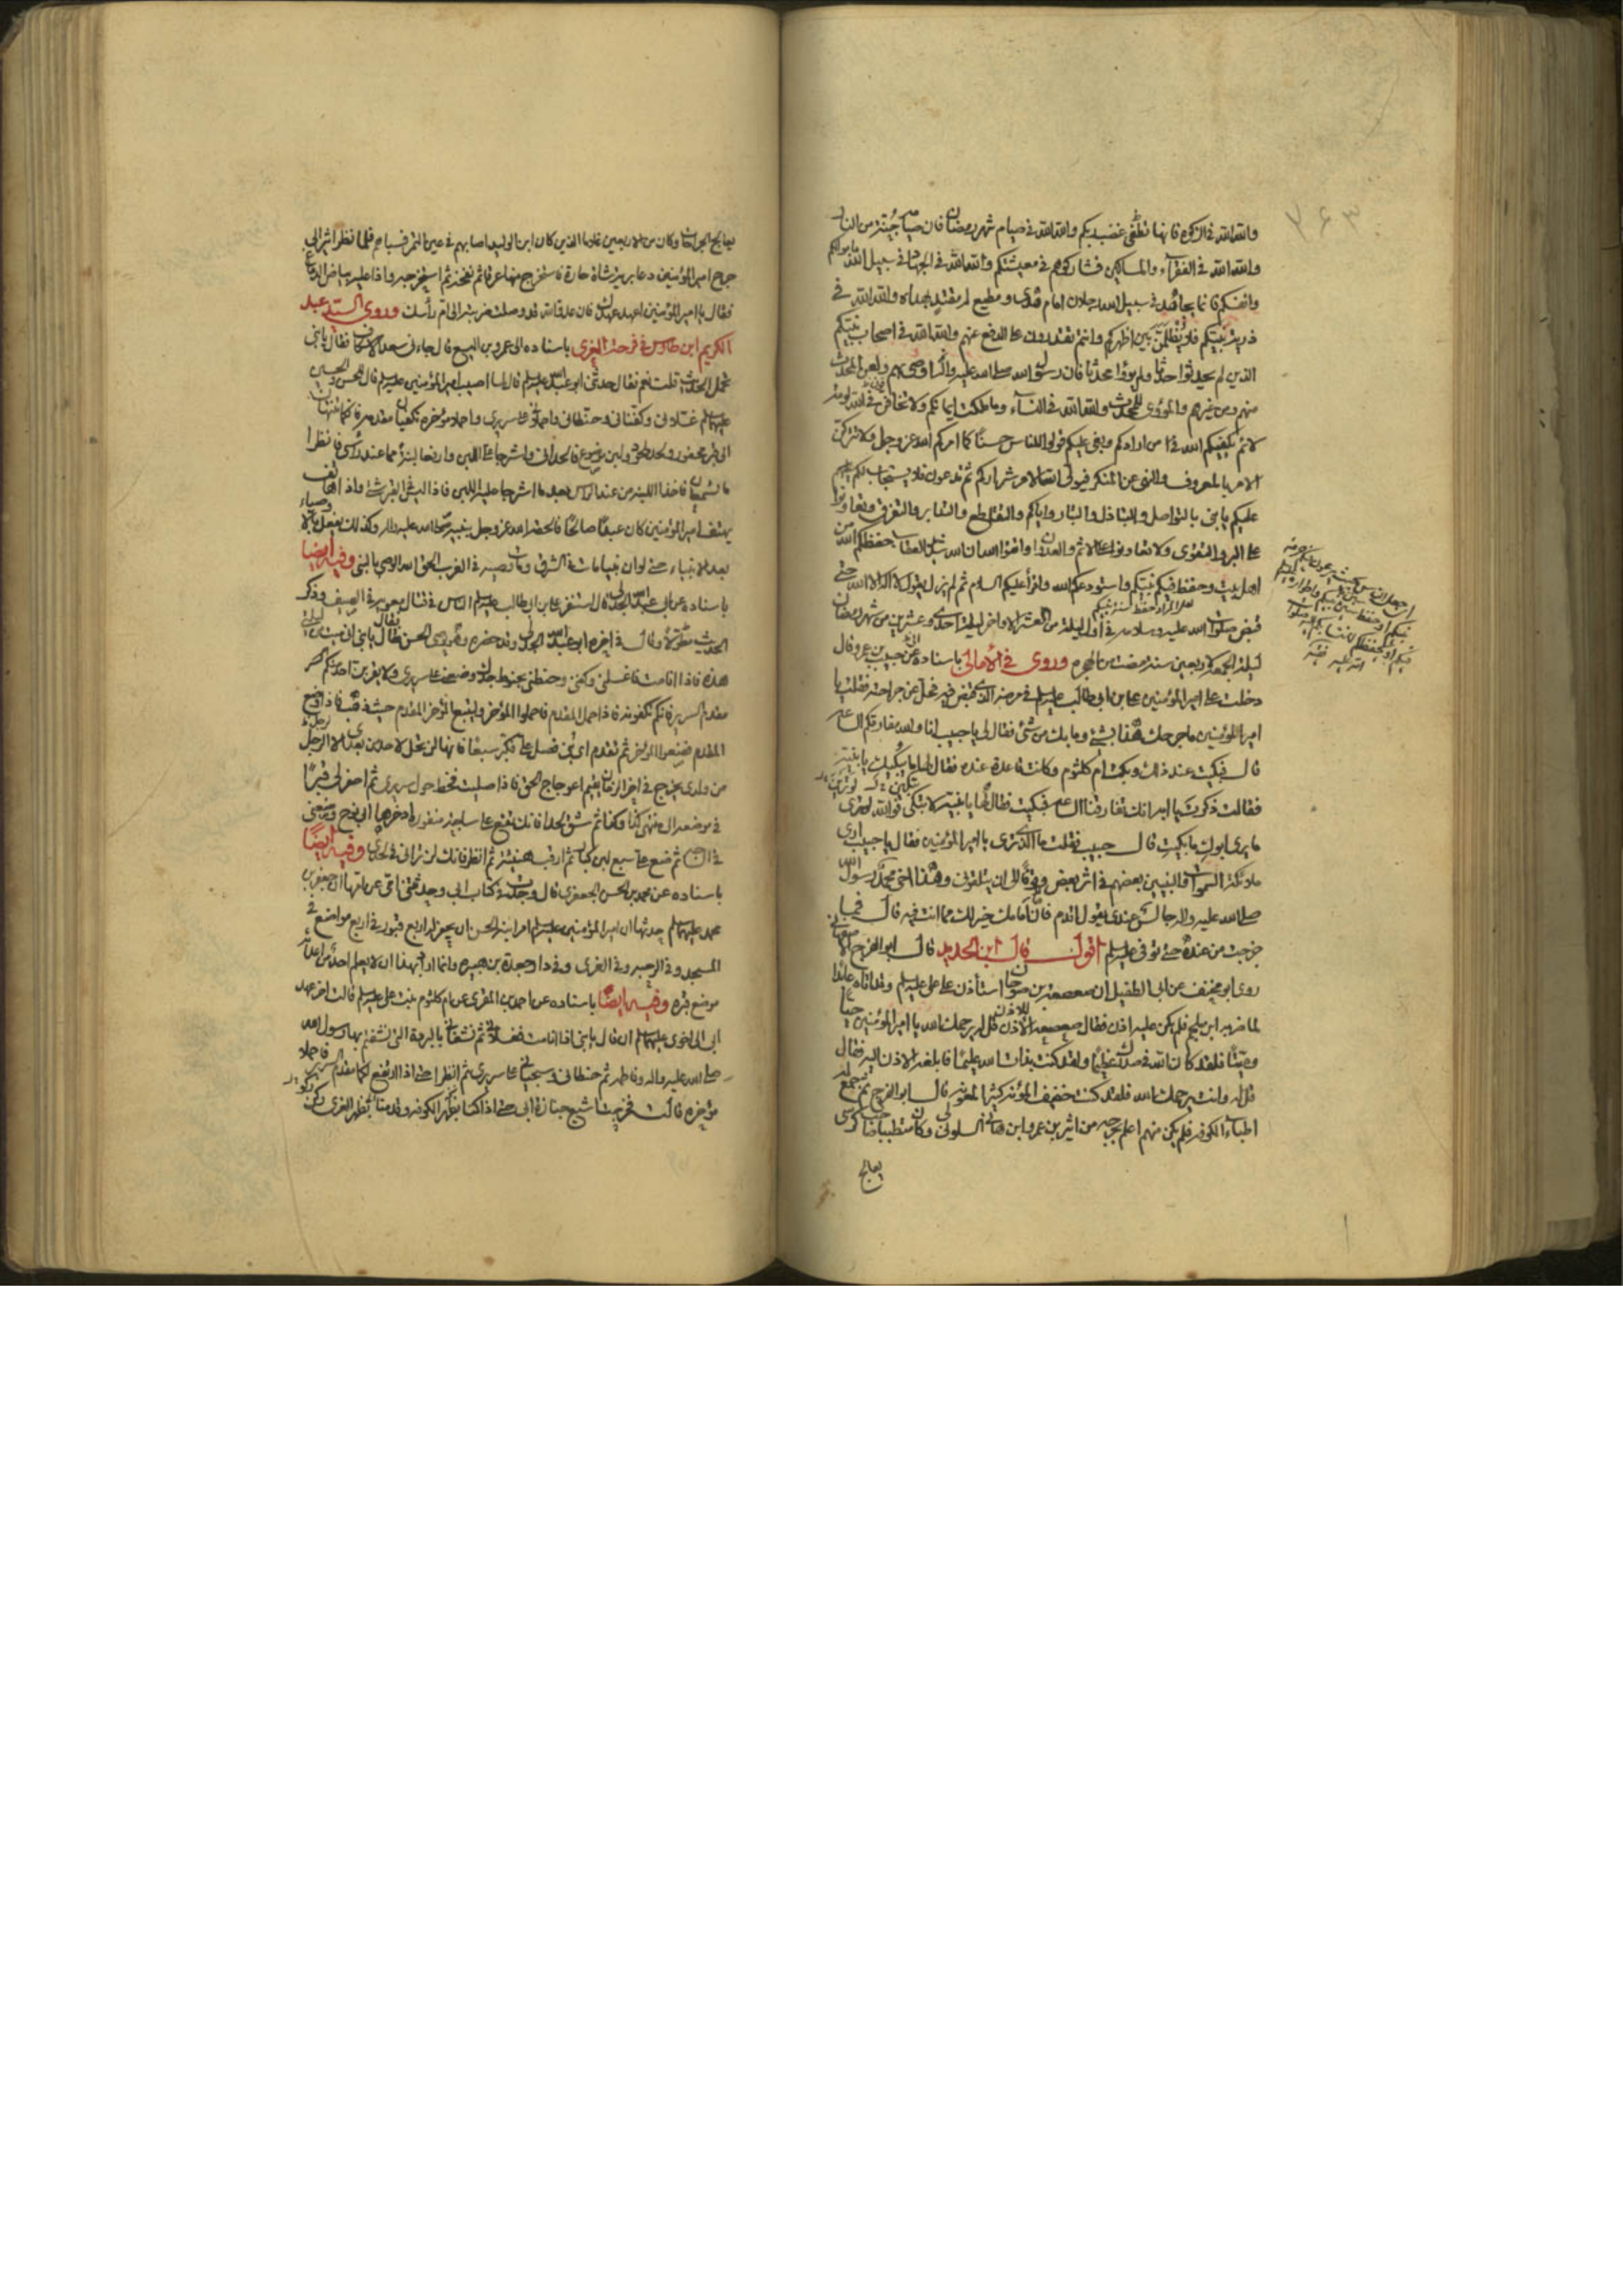 والله الله في الزكوة فانها تطفئ غضب ربكم والله الله في صيام شهر رمضان فان صيامه جنة من النار
والله الله في الفقراء والمساكين فشاركوهم في معيشتكم والله الله في الجهاد في سبيل الله باموالكم
وانفسكم فانما يجاهد في سبيل الله رجلان امام هدى ومطيع له مقتد بهداه والله الله في
ذرية نبيكم فلا يظلمن بين اظهركم وانتم تقدرون على الدفع عنهم والله الله في اصحاب نبيكم
الذين لم يحدثوا حدثا ولم يؤوا محدثا فان رسول الله صلى الله عليه واله اوصى بهم ولعن المحدث
منهم ومن غيرهم والمؤوى للمحدث والله الله في النساء وما ملكت ايمانكم ولا تخافن في الله لومة
لائم يكفيكم الله من ارادكم وبغى عليكم قولوا للناس حسنا كما امركم الله عز وجل ولا تتركن
الامر بالمعروف والنهي عن المنكر فيولى الله الامر شراركم ثم تدعون فلا يستجاب لكم عليهم
عليكم يا بني بالتواصل والتباذل والتبار واياكم والتقاطع والتدابر والتفرق وتعاونوا
على البر والتقوى ولا تعاونوا على الاثم والعدوان واتقوا الله ان الله شديد العقاب حفظكم الله من
اهل بيت وحفظ فيكم نبيكم واستودعكم الله واقرأ عليكم السلام ثم لم يزل يقول لا اله الا الله حتى
قبض صلوات الله عليه وسلامه في اول ليلة من العشر الاواخر ليلة احدى وعشرين من شهر رمضان
ليلة الجمعة لاربعين سنة مضت من الهجرة وروى في الأمالي باسناده عن حبيب بن عمرو قال
دخلت على امير المؤمنين علي بن ابي طالب عليه السلم في مرضه الذي قبض فيه فحل عن جراحته فقلت يا
امير المؤمنين ما جرحك هذا بشئ وما بك من شئ فقال لي يا حبيب انا والله مفارقكم الساعة
قال فبكيت عند ذلك وبكت ام كلثوم وكانت قاعدة عنده فقال لها ما يبكيك يا بنية
فقالت ذكرت يا ابه انك تفارقنا الساعة فبكيت فقال لها يا بنية لا تبكي فوالله لو ترين
ما يرى ابوك ما بكيت قال حبيب فقلت ما الذي ترى يا امير المؤمنين فقال يا حبيب ارى
ملائكة السموات والنبيين بعضهم في اثر بعض وقوفا الى ان يتلقوني وهذا اخي محمد رسول الله
صلى الله عليه واله جالس عندي يقول اقدم فان امامك خير لك مما انت فيه قال فما
خرجت من عنده حتى توفى عليه السلم اقول قال ابن الحديد قال ابو الفرج الاصفهاني
روى ابو مخنف عن ابي الطفيل ان صعصعة بن صوحان استأذن على علي عليه السلم وقد اتاه عائدا
لما ضربه ابن ملجم فلم يكن عليه اذن فقال صعصعة للاذن قل له يرحمك الله يا امير المؤمنين حيا
وميتا فلقد كان الله في صدرك عظيما ولقد كنت بذات الله عليما فابلغه الاذن اليه فقال
قل له وانت يرحمك الله فلقد كنت خفيف المؤنة كثير المعونة قال ابو الفرج ثم جمع له
اطباء الكوفة فلم يكن منهم اعلم بجرحه من اثير بن عمرو ابن هاني السلولي وكان متطببا صاحب كرسي
يعالج
يعالج الجراحات وكان من الاربعين غلاما الذين كان ابن الوليد اصابهم في عين التمر فسباهم فلما نظر اثير الى
جرح امير المؤمنين دعا برية شاة حارة فاستخرج منها عرقا ثم نفخه ثم استخرجه واذا عليه بياض الدماغ
فقال يا امير المؤمنين اعهد عهدك فان عدو الله قد وصلت ضربته الى ام رأسك وروى السيد عبد
الكريم ابن طاوس في فرحة الغري باسناده الى عمرو بن اليسع قال جاءني سعد الاسكاف فقال يا بني
تحمل الحديث قلت نعم فقال حدثني ابو عبد الله عليه السلم قال لما اصيب امير المؤمنين عليه السلم قال للحسن والحسين
عليهما السلم غسلاني وكفناني وحنطاني واحملاني على سريري واحملا مؤخره تكفيان مقدمه فانكما تنتهيان
الى قبر محفور ولحد ملحود ولبن موضوع فالحداني واشرجا علي اللبن وارفعا لبنة مما عند رأسي فانظرا
ما تسمعان فاخذا اللبنة من عند الراس بعد ما اشرجا عليه اللبن فاذا ليس في القبر شئ واذا هاتف
يهتف امير المؤمنين كان عبدا صالحا فالحقه الله عز وجل بنبيه صلى الله عليه واله وكذلك يفعل بالاوصياء
بعد الانبياء حتى لو ان نبيا مات في الشرق ومات وصيه في الغرب الحق الله الوصي بالنبي وفيه ايضا
باسناده عن ابي عبد الله الجدلي قال استنفر علي بن ابي طالب عليه السلم الناس في قتال معوية في الصيف وذكر
الحديث مطولا وقال في اخره ابو عبد الله الجدلي وقد حضره وهو يوصي الحسن فقال يا بني اني ميت من ليلتي
هذه فاذا انا مت فاغسلني وكفني وحنطني بحنوط جدك وضعني على سريري ولا يقربن احد منكم
مقدم السرير فانكم تكفونه فاذا حمل المقدم فاحملوا المؤخر وليتبع المؤخر المقدم حيث ذهب فاذا وضع
المقدم فضعوا المؤخر ثم تقدم اي بني فصل علي فكبر سبعا فانها لن تحل لاحد من بعدي الا لرجل
من ولدي يخرج في اخر الزمان يقيم اعوجاج الحق فاذا صليت فخط حول سريري ثم احفر لي قبرا
في موضعه الى منتهى كذا وكذا ثم شق لحدا فانك تقع على ساجة منقورة ادخرها لي ابي نوح وضعني
في الساجة ثم ضع علي سبع لبن كبار ثم ارقب هنيئة ثم انظر فانك لن تراني في لحدي وفيه ايضا
باسناده عن محمد بن الحسن الجعفري قال وجدت في كتاب ابي وحدثتني امي عن امها ان جعفر بن
محمد عليهما السلم حدثها ان امير المؤمنين عليه السلم امر ابنه الحسن ان يحفر له اربع قبور في اربع مواضع في
المسجد وفي الرحبة وفي الغري وفي دار جعدة بن هبيرة وانما اراد بهذا ان لا يعلم احد من اعدائه
موضع قبره وفيه ايضا باسناده عن احمد بن المقرى عن ام كلثوم بنت علي عليه السلم قالت اخر عهد
ابي الى اخوي عليهما السلم ان قال يا بني اذا انا مت فغسلاني ثم نشفاني بالبردة التي نشفتم بها رسول الله
صلى الله عليه واله وفاطمة ثم حنطاني وسجياني على سريري ثم انظرا حتى اذا ارتفع لكما مقدم السرير فاحملا
مؤخره قالت فخرجت اشيع جنازة ابي حتى اذا كنا بظهر الكوفة وقدمنا بظهر الغري ركن